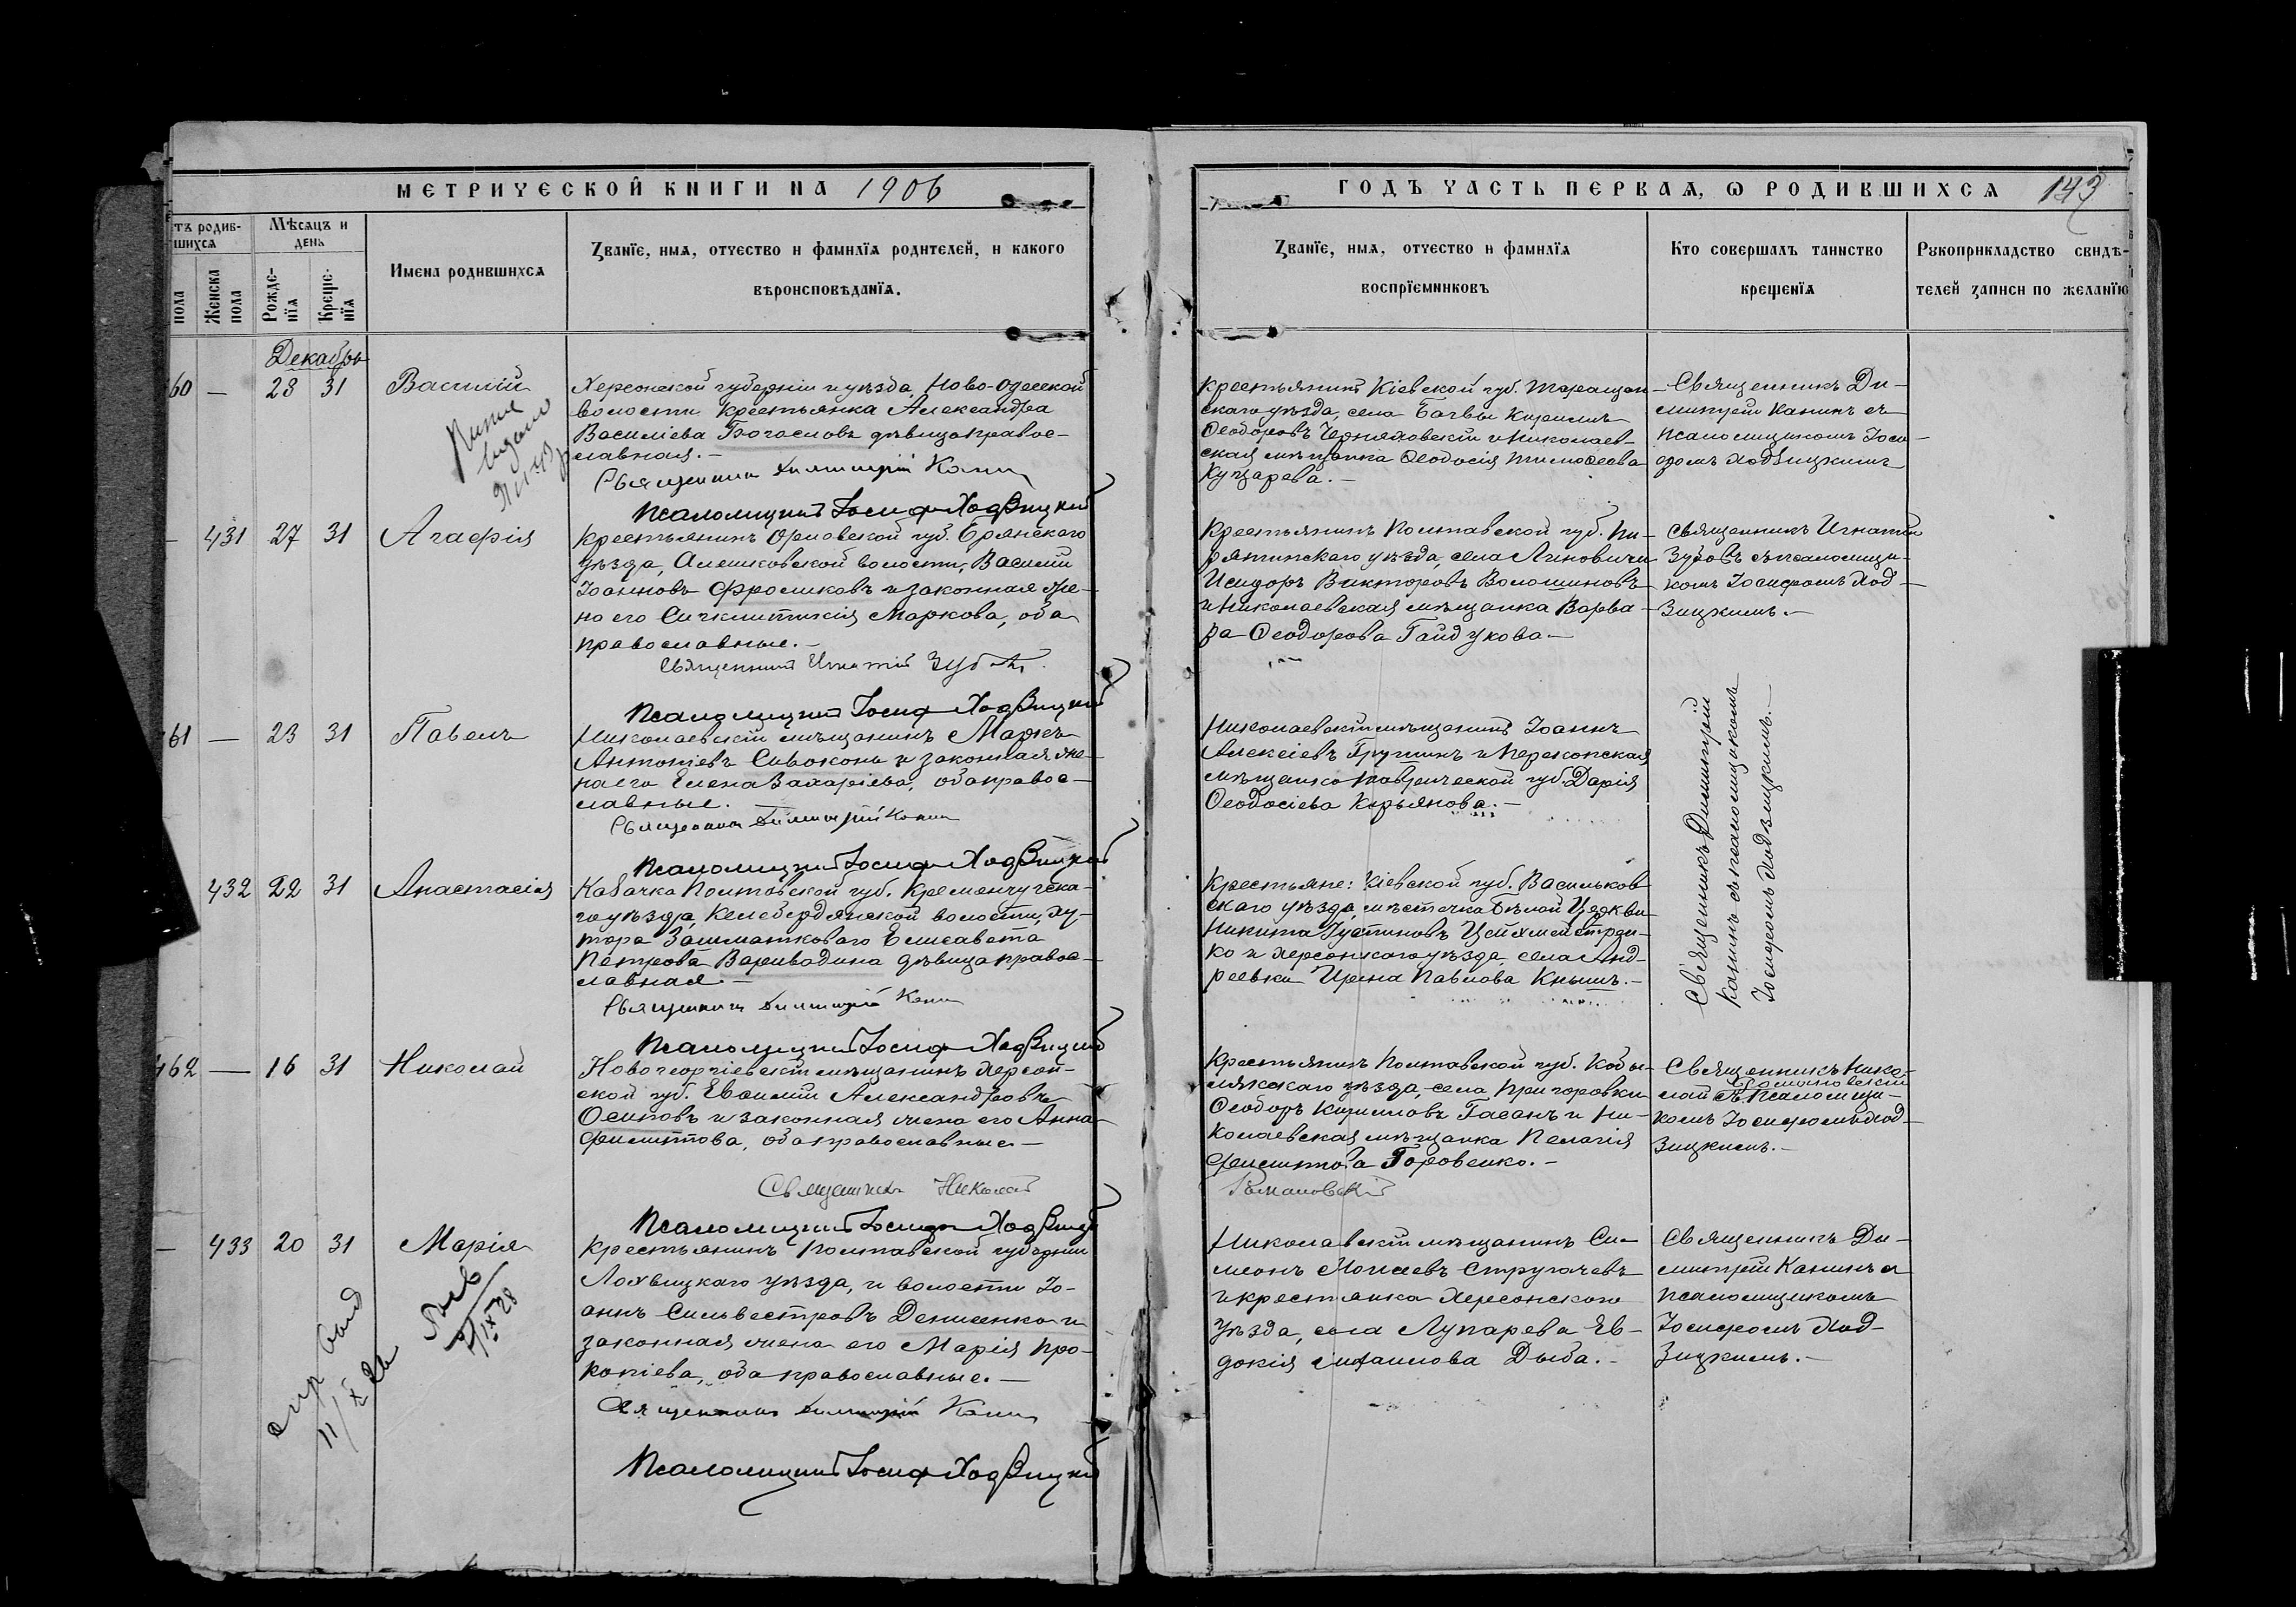 МЕТРИЧЕСКОЙ КНИГИ НА 1906
ГОДЪ ЧАСТЬ ПЕРВАЯ, Ѡ РОДИВШИХСЯ 143
тъ родив-
шихся
Мѣсяцъ и
день
пола
Женска
пола
Рожде-
нїя
Креще-
нїя
Имена родившихся
Званїе, имя, отчество и фамилїя родителей, и какого
вѣроисповѣданїя.
Званїе, имя, отчество и фамилїя
воспрїемниковъ
Кто совершалъ таинство
крещенїя
Рукоприкладство свидѣ-
телей записи по желанїю
Декабрь
60 — 23 31 Василій
Херсонской губерніи и уѣзда, Ново-Одесской
волости крестьянка Александра
Василіева Богаслова дѣвица правос-
лавная. —
Священникъ Димитрій Канин
Псаломщикъ Іосифъ Ходзицкій
Крестьянинъ Кіевской губ. Таращан-
скаго уѣзда, села Бачвы Кириллъ
Ѳеодоровъ Черняховскій и Николаев-
ская мѣщанка Ѳеодосія Тимоѳеева
Куцарева. —
Священникъ Ди-
митрій Канинъ съ
псаломщикомъ Іоси-
фомъ Ходзицкимъ
— 431 27 31 Агафія
Крестьянинъ Орловской губ. Брянскаго
уѣзда, Алешковской волости, Василій
Іоанновъ Фроликовъ и законная же-
на его Сигклитикія Маркова, оба
православные. —
Священникъ Игнатій Зубовъ.
Псаломщикъ Іосифъ Ходзицкій
Крестьянинъ Полтавской губ. Пи-
рятинскаго уѣзда, села Линовичи
Исидоръ Викторовъ Волошиновъ
и Николаевская мѣщанка Варва-
ра Ѳеодорова Гайдукова —
Священникъ Игнатій
Зубовъ съ псаломщи-
комъ Іосифомъ Ход-
зицкимъ. —
61 — 23 31 Павелъ
Николаевскій мѣщанинъ Маркъ
Антоніевъ Сивоконь и законная же-
на его Елена Захаріева, оба правос-
лавные. —
Священникъ Димитрій Канин
Псаломщикъ Іосифъ Ходзицкій
Николаевскій мѣщанинъ Іоаннъ
Алексіевъ Грушинъ и Перекопская
мѣщанка Таврической губ. Дарія
Ѳеодосіева Кирьянова. —
Священникъ Димитрій
Канинъ съ псаломщикомъ
Іосифомъ Ходзицкимъ. —
432 22 31 Анастасія
Казачка Полтавской губ. Кременчугска-
го уѣзда, Келебердянской волости, ху-
тора Елисавета
Петрова Варивадина дѣвица правос-
лавная. —
Священникъ Димитрій Канин
Псаломщикъ Іосифъ Ходзицкій
Крестьяне: Кіевской губ. Васильков-
скаго уѣзда, мѣстечка Бѣлой Церкви
Никита Іустиновъ Цейхмейстрен-
ко и Херсонскаго уѣзда, села Анд-
реевки Ирина Павлова Кнышъ. —
462 — 16 31 Николай
Новогеоргіевскій мѣщанинъ Херсон-
ской губ. Евѳимій Александровъ
Осиповъ и законная жена его Анна
Филиппова, оба православные —
Священникъ Николай
Романовскій
Псаломщикъ Іосифъ Ходзицкій
Крестьянинъ Полтавской губ. Кобы-
лякскаго уѣзда, села Григоровки
Ѳеодоръ Кирилловъ Гасанъ и Ни-
колаевская мѣщанка Пелагія
Филиппова Горовенко. —
Священникъ Нико-
лай Романовскій съ псаломщи-
комъ Іосифомъ Ход-
зицкимъ. —
— 433 20 31 Марія
Крестьянинъ Полтавской губерніи
Лохвицкаго уѣзда, и волости Іо-
аннъ Сильвестровъ Денисенко и
законная жена его Марія Про-
копіева, оба православные. —
Священникъ Димитрій Канин
Псаломщикъ Іосифъ Ходзицкій
Николавскій мѣщанинъ Си-
меонъ Моисеевъ Стругачевъ
и крестьянка Херсонскаго
уѣзда, села Лупарева Ев-
докія Михаилова Дыба. —
Священникъ Ди-
митрій Канинъ съ
псаломщикомъ
Іосифомъ Ход-
зицкимъ. —